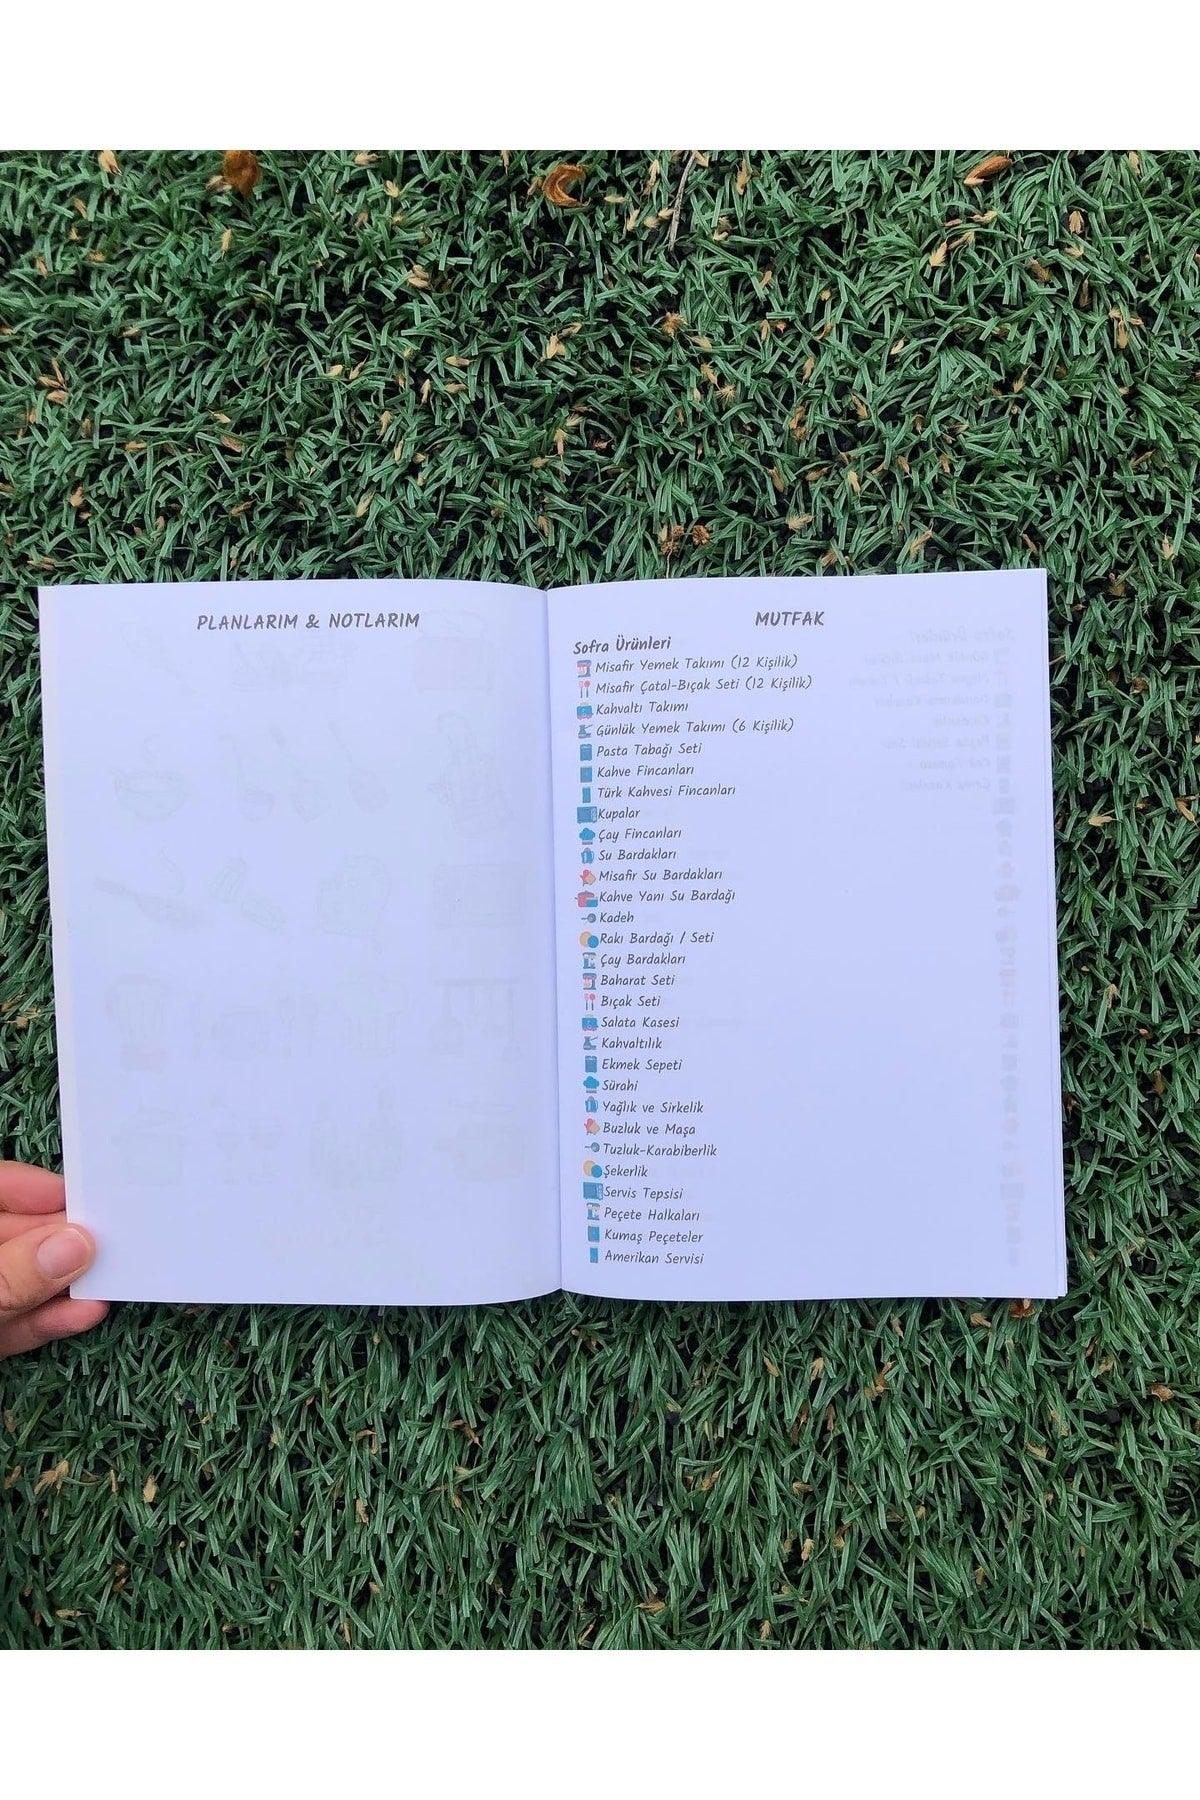 PLANLARIM & NOTLARIM
MUTFAK
Sofra Ürünleri
Misafir Yemek Takımı (12 Kişilik)
Misafir Çatal-Bıçak Seti (12 Kişilik)
Kahvaltı Takımı
Günlük Yemek Takımı (6 Kişilik)
Pasta Tabağı Seti
Kahve Fincanları
Türk Kahvesi Fincanları
Kupalar
Çay Fincanları
Su Bardakları
Misafir Su Bardakları
Kahve Yanı Su Bardağı
Kadeh
Rakı Bardağı / Seti
Çay Bardakları
Baharat Seti
Bıçak Seti
Salata Kasesi
Kahvaltılık
Ekmek Sepeti
Sürahi
Yağlık ve Sirkelik
Buzluk ve Maşa
Tuzluk-Karabiberlik
Şekerlik
Servis Tepsisi
Peçete Halkaları
Kumaş Peçeteler
Amerikan Servisi